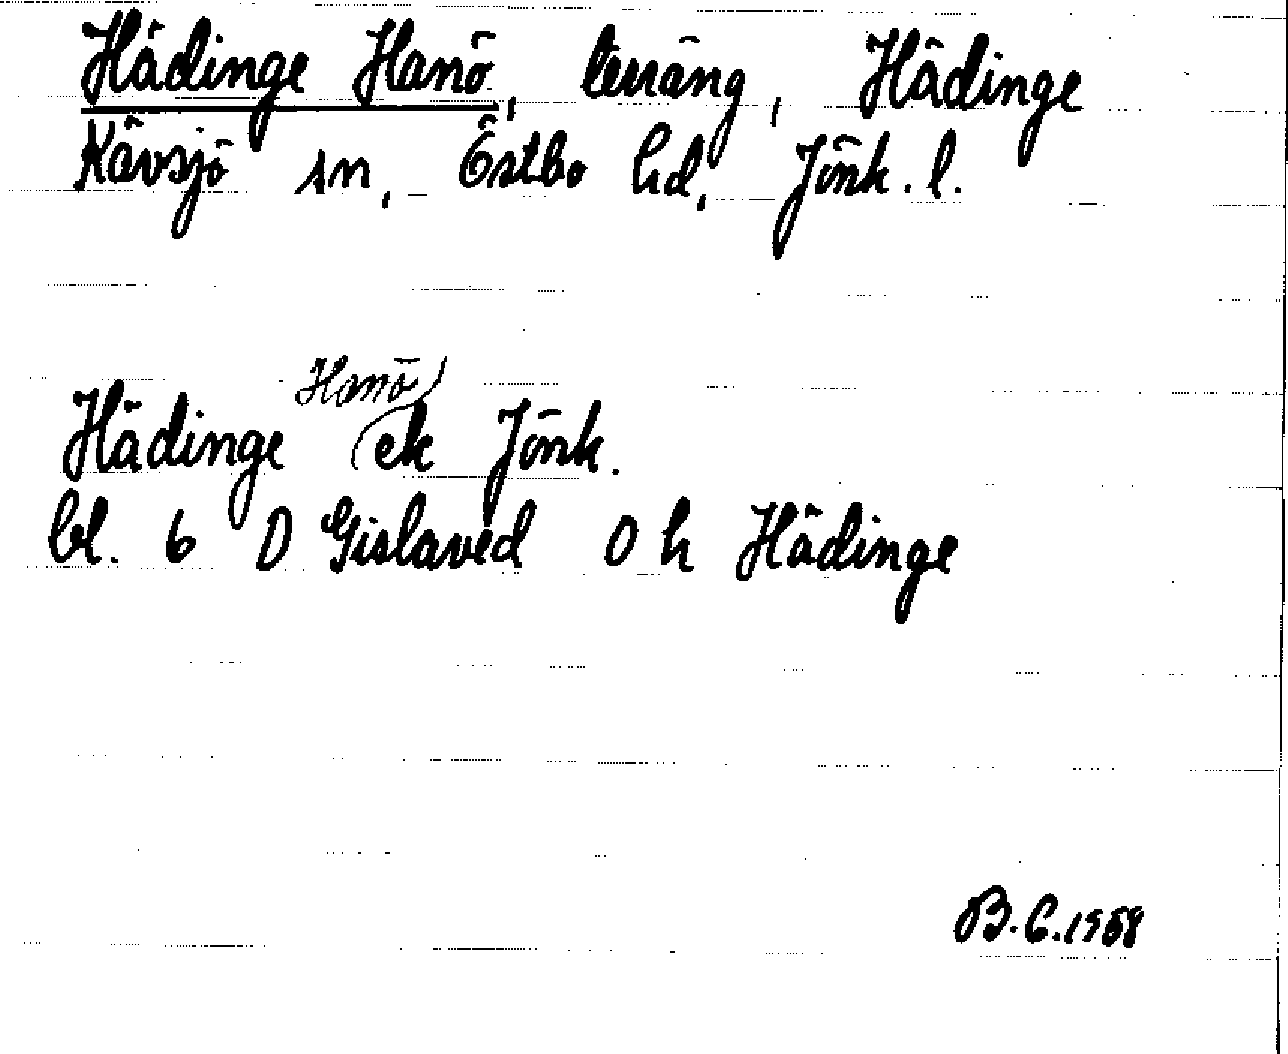 Hädinge Hanö, terräng, Hädinge
Kävsjö sn, Östbo hd, Jönk. l.
Hanö
Hädinge ek Jönk.
bl. 6 D Gislaved O h Hädinge
B.C. 1958